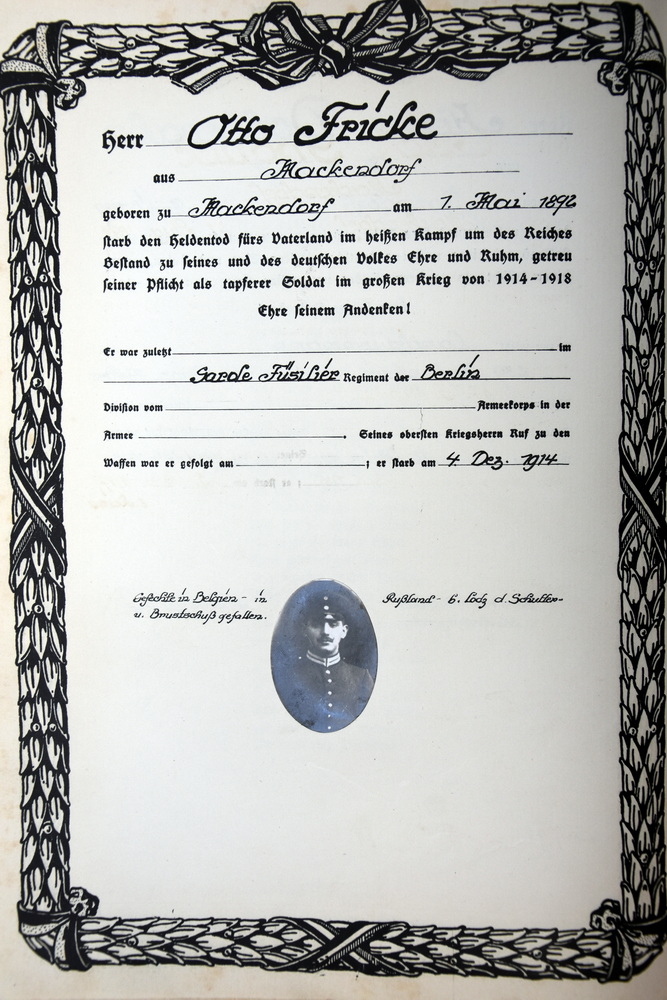 Herr Otto Fricke
aus Mackendorf
geboren zu Mackendorf am 1. Mai 1892
starb den Heldentod fürs Vaterland im heißen Kampf um des Reiches
Bestand zu seines und des deutschen Volkes Ehre und Ruhm, getreu
seiner Pflicht als tapferer Soldat im großen Krieg von 1914-1918
Ehre seinem Andenken!
Er war zuletzt im
Garde Füsilier Regiment der Berlin
Division vom Armeekorps in der
Armee . Seines obersten Kriegsherrn Ruf zu den
Waffen war er gefolgt am ; er starb am 4. Dez. 1914
Gefechte in Belgien - in Rußland - b. Lodz d. Schulter-
u. Brustschuß gefallen.